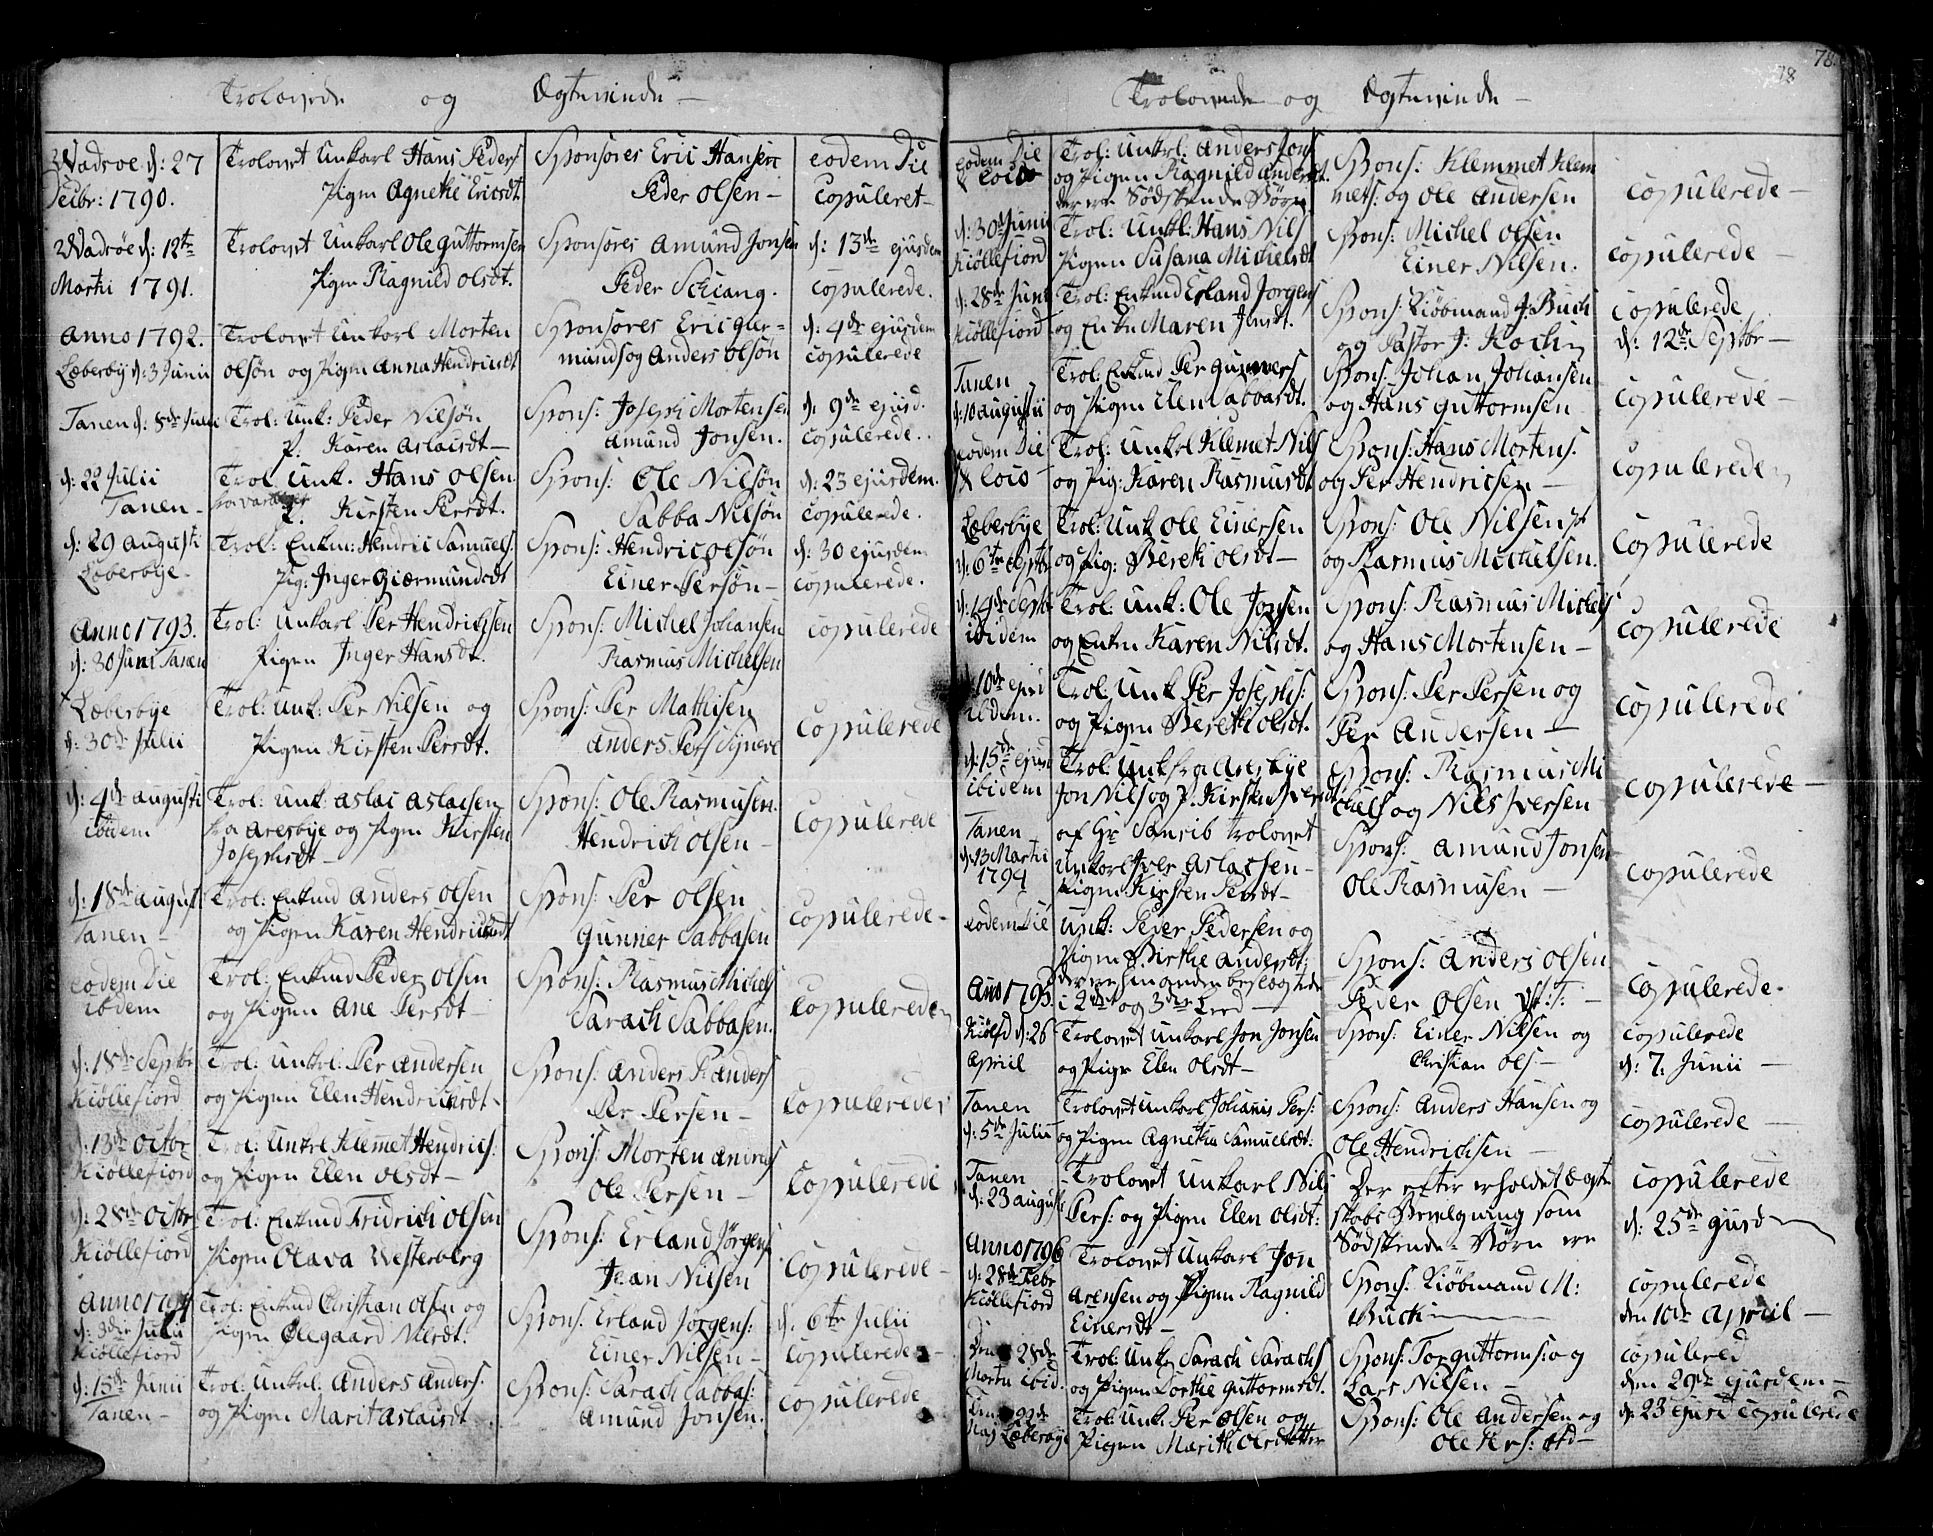 Trolovede og Ægteviede —
Wadsøe d: 27 Trolovet Unkarl Hans Peders Sponsores Eric Hansen eodem Die
Decbr: 1790. Pigen Agnethe Ericsdt. Peder Olsen — Copuleret —
Wadsöe d: 12te Trolovet Unkarl Ole Guttormsen Sponsores Amund Jonsen d: 13de ejusdem
Martii 1791. Pigen Ragnild Olsdt. Peder Schiang. copulerede.
Anno 1792. Trolovet Unkarl Morten Sponsores Eric Gier= d: 4de ejusdem
Læbesby d: 3 Junii Olsøn og Pigen Anna Hendricsdt munds og Anders Olsøn copulerede
Tanen d: 8de Julii Trol: Unk: Peder Nilsøn Spons: Joseph Mortensen d. 9de ejusd.
P. Karen Aslacsdt — Amund Jonsen. copulerede.
d: 22 Julii Trol: Unk. Hans Olsen Spons: Ole Nilsøn d: 23 ejusdem.
Tanen — P. Kirsten Persdt. Sabba Nilsøn copulerede.
d: 29 Augusti Trol: Enkm: Hendric Samuels: Spons: Hendric Olsøn d: 30 ejusdem
Læbesbye — Pig: Inger Giærmundsdt Einer Persøn — copulerede.
Anno 1793. Trol: Unkarl Per Hendrichsen Spons: Michel Johansen copulerede
d: 30 Juni Tanen Pigen Inger Hansdt. Rasmus Michelsen
Læbesbye Trol: Unk: Per Nilsen og Spons: Per Mathisen Copulerede
d: 30de Julii Pigen Kirsten Persdt. Anders Pers
d: 4de Augusti Trol: Unk: Aslac Aslacsen Spons: Ole Rasmusen. Copulerede
ibidem fra Aresbye og Pigen Kirsten Hendrich Olsen —
Josephsdt —
d: 18de August Trol: Enkmd Anders Olsen Spons: Per Olsen Copulerede —
Tanen — og Pigen Karen Hendricksdt Gunner Sabbasen
eodem Die Trol: Enkmd Peder Olsen Spons: Rasmus Michels Copulerede
ibidem og Pigen Ane Persdt — Sarach Sabbasen.
d: 18de Septbr Trol: Unkrl: Per Andersen Spons: Anders P: Anders Copulerede
Kiøllefiord og Pigen Elen Hendricksdt — Per Persen —
d: 13de Octbr Trol: Unkrl Klemet Hendrics: Spons: Morten Andreas Copulerede
Kiøllefiord og Pigen Elen Olsdt — Ole Persen —
d: 28de Octbr Trol: Enkmd Fridrich Olsen Spons: Erland Jørgens Copulerede —
Kiøllefiord Pigen Olava Westerberg Jean Nilsen
Anno 1794 Trol: Enkmd Christian Olsen og Spons: Erland Jørgens: d. 6te Julii
d: 3die Julii Pigen Olegaard Nilsdt. Einer Nilsen — Copulerede —
Kiøllefiord
d: 15de Junii Trol: Unkrl: Anders Anders. Spons: Sarach Sabbas: copulerede
Tanen — og Pigen Marit Aslacsdt Amund Jonsen.
78.
18
Trolovede og Ægteviede —
eodem Die Trol: Unkrl: Anders Jons Spons: Klemmet Klem Copulerede —
& loco og Pigen Ragnild Andersdt. mets: og Ole Andersen
der ere Södskende Börn
d: 30 Junii Trol: Unkl: Hans Nils Spons: Michel Olsen copulerede —
Kiøllefiord Pigen Susana Michelsdt Einer Nilsen.
d: 28de Juni Trol: Enkmd Erland Jorgens Spons: Kiöbmand J: Buch copulerede
Kiøllefiord og Enke Maren Jensdt. og Pastor J: Koch d: 12te Septbr —
Tanen Trol: Enkmd Per Gunners Spons: Johan Johansen Copulerede —
d: 10 Augustii og Pigen Elen Sabbasdt. og Hans Guttormsen
eodem Die Trol: Unkrl Klemet Nils Spons: Hans Mortens. Copulerede
& loco og Pig: Karen Rasmusdt og Per Hendricsen —
Læbesbye Trol: Unk Ole Einersen Spons: Ole Nilsen Copulerede
d: 6te Septbr og Pig: Bereth Olsdt — og Rasmus Michelsen.
d: 14de Septbr Trol: Unk: Ole Jonsen Spons: Rasmus Michels Copulerede
ibidem og Enken Karen Nilsdt. og Hans Mortensen —
10de ejus Trol: Unk Per Josephs: Spons: Per Persen og Copulerede
ibdem. og Pigen Bereth Olsdt. Per Andersen —
d: 15de ejusd Trol: Unk fra Aresbye Spons: Rasmus Mi Copulerede —
ibidem Jon Nils og P. Kirsten Iversdt chels og Nils Iversen
Tanen af Hr Sanrib trolovet Spons: Amund Jonsen Copulerede
d: 13 Martii Unkarl Iver Aslacsen — Ole Rasmusen —
1794 Pigen Kirsten Persdt —
eodem Die Unk: Peder Pedersen og Spons: Anders Olsen Copulerede.
Pigen Birthe Andersdt: Peder Olsen
der ere hinanden beslögtede
Ano 1795. i 2det og 3die Leed —
Kiölfd d: 26 Trolovet Unkarl Jon Jonsen Spons: Einer Nilsen og copulerede
April og Pige Elen Olsdt — Christian Ols — d: 7. Junii —
Tanen Trolovet Unkarl Johanis Pers: Spons: Anders Hansen og copulerede —
d: 5te Julii og Pigen Agnethe Samuelsdt: Ole Hendrichsen —
Tanen Trolovet Unkarl Nils Der efter erholdet Ægte Copulerede
d: 23 August Pers: og Pigen Elen Olsdt: skabs Bevilgning som d: 25de ejusd —
Södskende=Börn ere
Anno 1796 Trolovet Unkarl Jon Spons: Kiöbmand M: copulerede
d: 28de Febr Arensen og Pigen Ragnild Buch — den 10de April —
Kiøllefiord Einersdt —
Den 28de Trol: Unkr Sarach Sarachs Spons: Tor Guttorms: og copulered
Martii ibid. og Pigen Dorthe Guttormsdt. Lars Nilsen — den 29de ejusdem —
Den 22de Trol: Unk: Per Olsen og Spons: Ole Andersen og d: 23 ejusd copulerede
Maj Læbesbye Pigen Marith Olsdatter